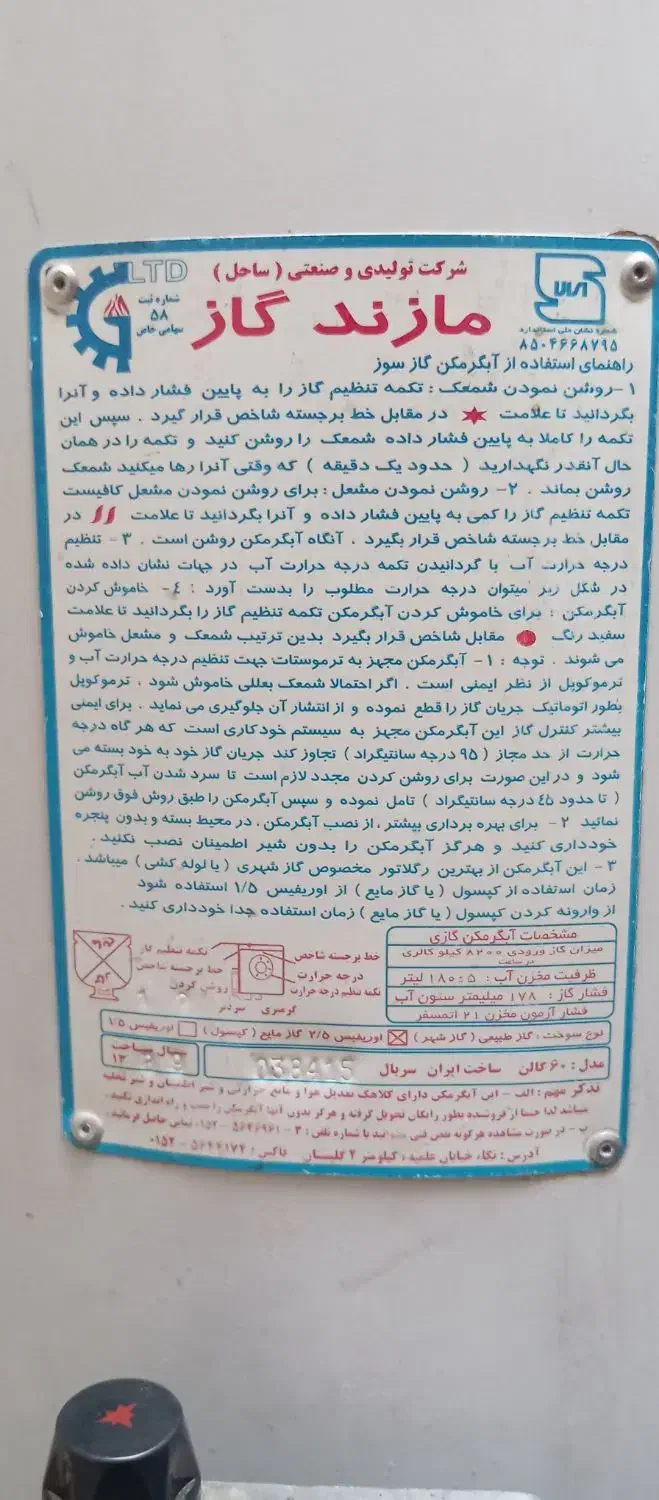 LTD
شرکت تولیدی و صنعتی ( ساحل )
شماره ثبت
۵۸
سهامی خاص
مازند گاز
شماره نشان ملی استاندارد
۸۵۰۴۶۶۸۷۹۵
راهنمای استفاده از آبگرمکن گاز سوز
۱-روشن نمودن شمعک : تکمه تنظیم گاز را به پایین فشار داده و آنرا
بگردانید تا علامت در مقابل خط برجسته شاخص قرار گیرد . سپس این
تکمه را کاملا به پایین فشار داده شمعک را روشن کنید و تکمه را در همان
حال آنقدر نگهدارید ( حدود یک دقیقه ) که وقتی آنرا رها میکنید شمعک
روشن بماند . ۲- روشن نمودن مشعل : برای روشن نمودن مشعل کافیست
تکمه تنظیم گاز را کمی به پایین فشار داده و آنرا بگردانید تا علامت در
مقابل خط برجسته شاخص قرار بگیرد . آنگاه آبگرمکن روشن است . ۳- تنظیم
درجه حرارت آب با گردانیدن تکمه درجه حرارت آب در جهات نشان داده شده
در شکل زیر میتوان درجه حرارت مطلوب را بدست آورد : ٤- خاموش کردن
آبگرمکن : برای خاموش کردن آبگرمکن تکمه تنظیم گاز را بگردانید تا علامت
سفید رنگ مقابل شاخص قرار بگیرد بدین ترتیب شمعک و مشعل خاموش
می شوند . توجه : ۱- آبگرمکن مجهز به ترموستات جهت تنظیم درجه حرارت آب و
ترموکوپل از نظر ایمنی است . اگر احتمالا شمعک بعللی خاموش شود ، ترموکوپل
بطور اتوماتیک جریان گاز را قطع نموده و از انتشار آن جلوگیری می نماید . برای ایمنی
بیشتر کنترل گاز این آبگرمکن مجهز به سیستم خودکاری است که هر گاه درجه
حرارت از حد مجاز ( ۹۵ درجه سانتیگراد ) تجاوز کند جریان گاز خود به خود بسته می
شود و در این صورت برای روشن کردن مجدد لازم است تا سرد شدن آب آبگرمکن
( تا حدود ٤٥ درجه سانتیگراد ) تامل نموده و سپس آبگرمکن را طبق روش فوق روشن
نمائید ۲- برای بهره برداری بیشتر ، از نصب آبگرمکن ، در محیط بسته و بدون پنجره
خودداری کنید و هرگز آبگرمکن را بدون شیر اطمینان نصب نکنید .
۳- این آبگرمکن از بهترین رگلاتور مخصوص گاز شهری ( یا لوله کشی ) میباشد .
زمان استفاده از کپسول ( یا گاز مایع ) از اوریفیس ۱/۵ استفاده شود
از وارونه کردن کپسول ( یا گاز مایع ) زمان استفاده جدا خودداری کنید .
تکمه تنظیم گاز
خط برجسته شاخص
روشن کردن
خط برجسته شاخص
درجه حرارت
تکمه تنظیم درجه حرارت
گرمتری سردتر
مشخصات آبگرمکن گازی
میزان گاز ورودی ۸۲۰۰ کیلو کالری
در ساعت
ظرفیت مخزن آب : ۵ ± ۱۸۰ لیتر
فشار گاز : ۱۷۸ میلیمتر ستون آب
فشار آزمون مخزن ۲۱ اتمسفر
نوع سوخت : گاز طبیعی ( گاز شهر ) اوریفیس ۲/۵ گاز مایع ( کپسول ) اوریفیس ۱/۵
مدل : ۶۰ گالن ساخت ایران سریال 038415
سال ساخت
۱۳ 89
تذکر مهم : الف - این آبگرمکن دارای کلاهک تعدیل هوا و مانع حرارتی و شیر اطمینان و شیر تخلیه
میباشد لذا حتما از فروشنده بطور رایگان تحویل گرفته و هرگز بدون آنها آبگرمکن را نصب و راه اندازی نکنید .
ب - در صورت مشاهده هرگونه نقص فنی میتوانید با شماره تلفن : ۳ - ۵۶۴۶۹۶۱-۰۱۵۲ تماس حاصل فرمائید .
آدرس : نکاء خیابان علمیه ، کیلومتر ۲ گلبستان فاکس : ۵۶۴۴۱۷۴-۰۱۵۲